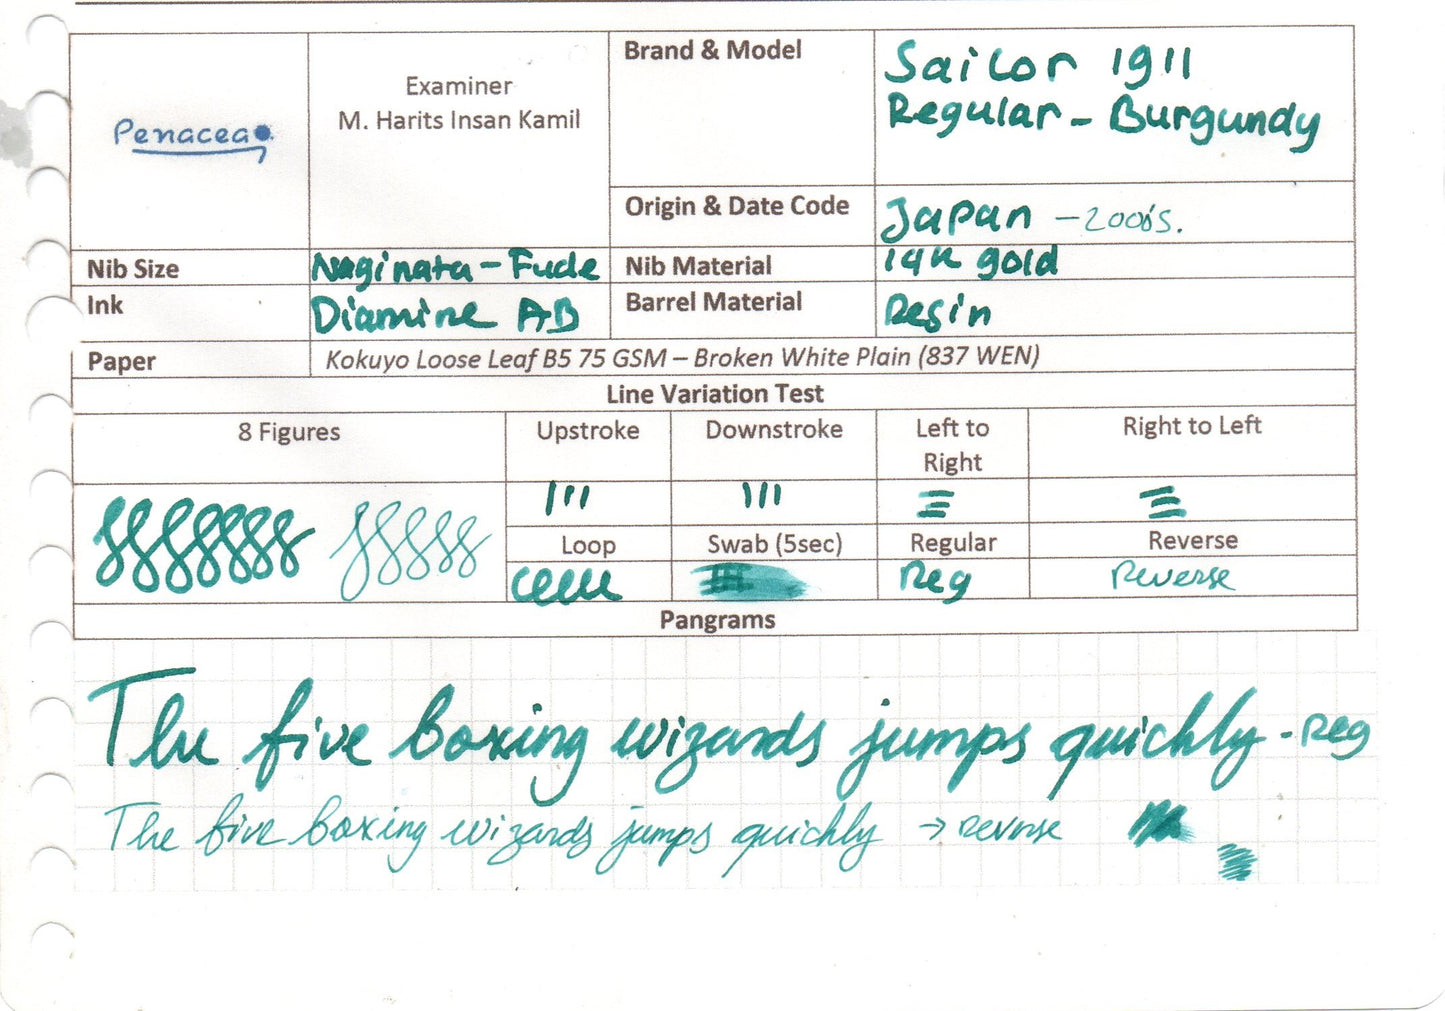 Penacea
Examiner
M. Harits Insan Kamil
Brand & Model
Sailor 1911
Regular - Burgundy
Origin & Date Code
Japan - 2000's.
Nib Size
Naginata - Fude
Nib Material
14K gold
Ink
Diamine AB
Barrel Material
Resin
Paper
Kokuyo Loose Leaf B5 75 GSM – Broken White Plain (837 WEN)
Line Variation Test
8 Figures
Upstroke
Downstroke
Left to
Right
Right to Left
Loop
Swab (5sec)
Regular
Reverse
Reg
Reverse
Pangrams
The five boxing wizards jumps quickly - Reg
The five boxing wizards jumps quickly → reverse